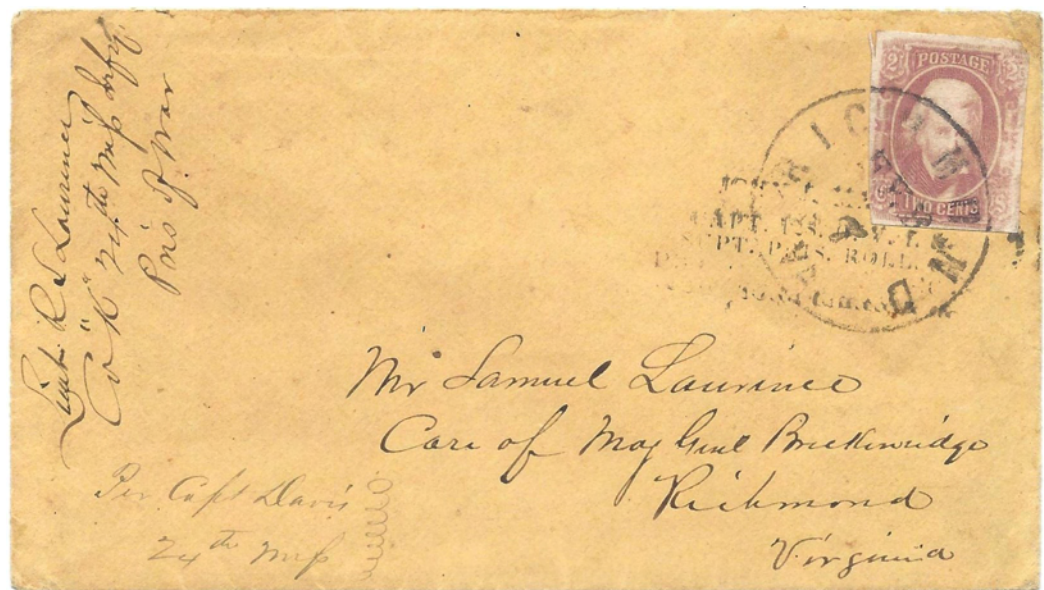 Lieut R S Lawrence
Co "K" 24th Miss Infty
Pris of War
2 POSTAGE 2
TWO CENTS
RICHMOND
CAPT.
SUPT. PRIS. ROLL.
Mr Samuel Laurince
Care of Maj Genl Breckenridge
Richmond
Virginia
Per Capt Davis
24th Miss